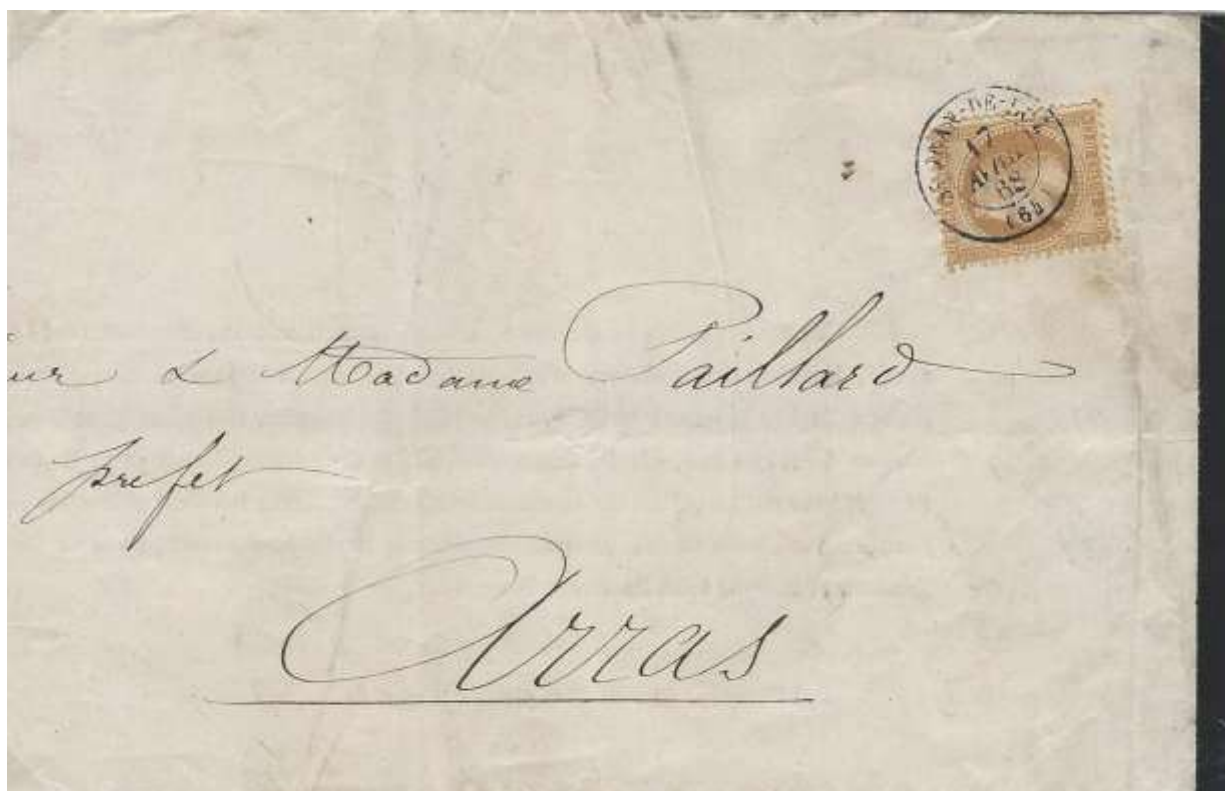 ST-JEAN-DE-LUZ
17
AVRIL
(64)
ur & Madame Paillard
prefet
Arras